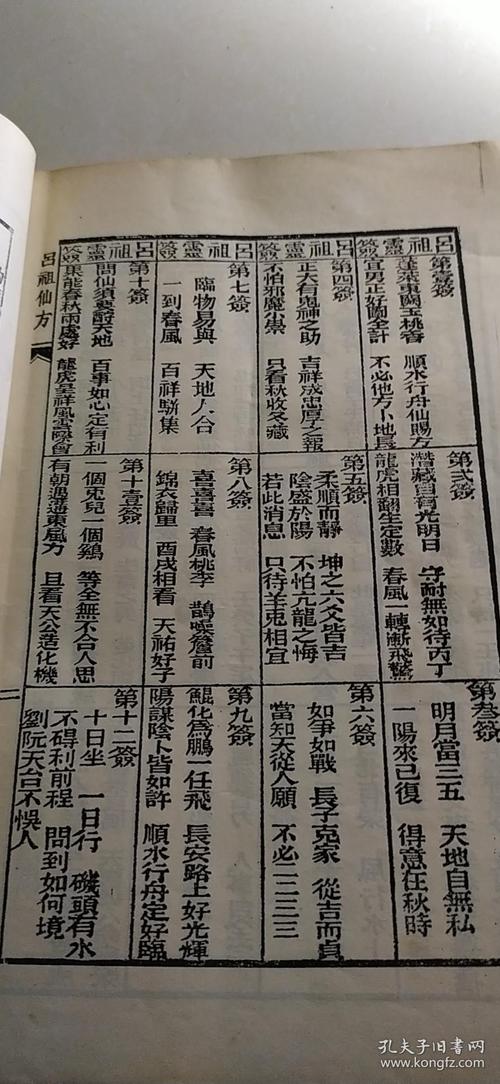 呂祖靈簽
第壹簽
蓬萊東闕玉桃香 順水行舟仙賜方
宜男正好圖全計 不必他方卜地長
第弍簽
潛藏自有光明日 守耐無如待丙丁
龍虎相翻生定數 春風一轉漸飛騰
第叁簽
明月當三五 天地自無私
一陽來已復 得意在秋時
呂祖靈簽
第四簽
正大有鬼神之助 吉祥成忠厚之報
不怕邪魔小祟 只看秋收冬藏
第五簽
柔順而靜 坤之六爻皆吉
陰盛於陽 不怕亢龍之悔
若此消息 只待羊兎相宜
第六簽
如爭如戰 長子克家 從吉而貞
當知天從人願 不必一二三三
第七簽
臨物易與 天地人合
一到春風 百祥駢集
第八簽
喜喜喜 春風桃李 鵲噪簷前
錦衣歸里 酉戌相看 天祐好子
第九簽
鯤化為鵬一任飛 長安路上好光輝
陽謀陰卜皆如許 順水行舟定好臨
呂祖靈簽
第十簽
問仙須要酧天地 百事如心定有利
果能春秋兩處好 龍虎呈祥風雲際會
第十壹簽
一個兎兒一個鷄 等全無不合人思
有朝遇着東風力 且看天公造化機
第十二簽
十日坐 一日行 磯頭有水
不碍利前程 問到如何境
劉阮天台不悞人
呂祖仙方
二
孔夫子旧书网
www.kongfz.com